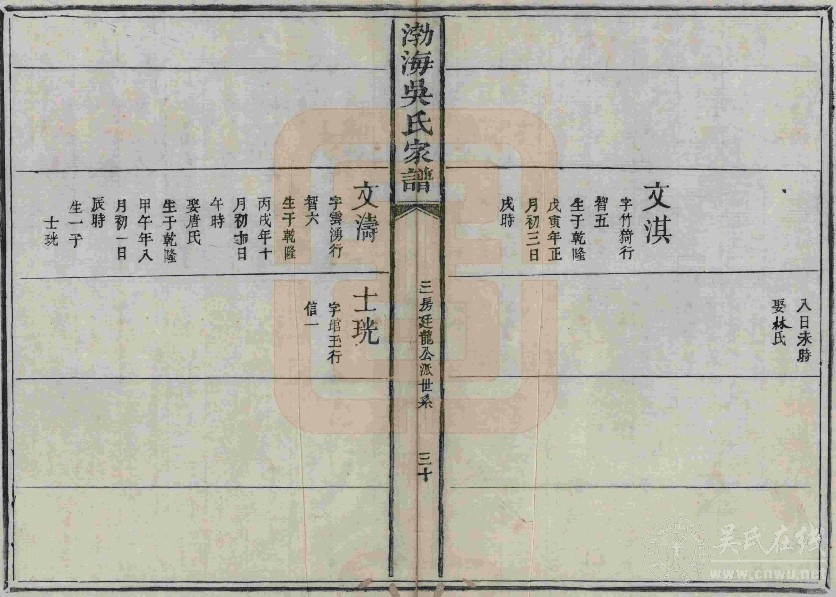 入日未時
娶林氏
文淇
字竹猗行
智五
生于乾隆
戊寅年正
月初三日
戌時
渤海吳氏家譜
三房廷龍公派世系
三十
文濤
字雲湧行
智六
生于乾隆
丙戌年十
月初日
午時
娶唐氏
生于乾隆
甲午年八
月初一日
辰時
生一子
士珖
士珖
字玉行
信一
吴氏在线
www.cnwu.net